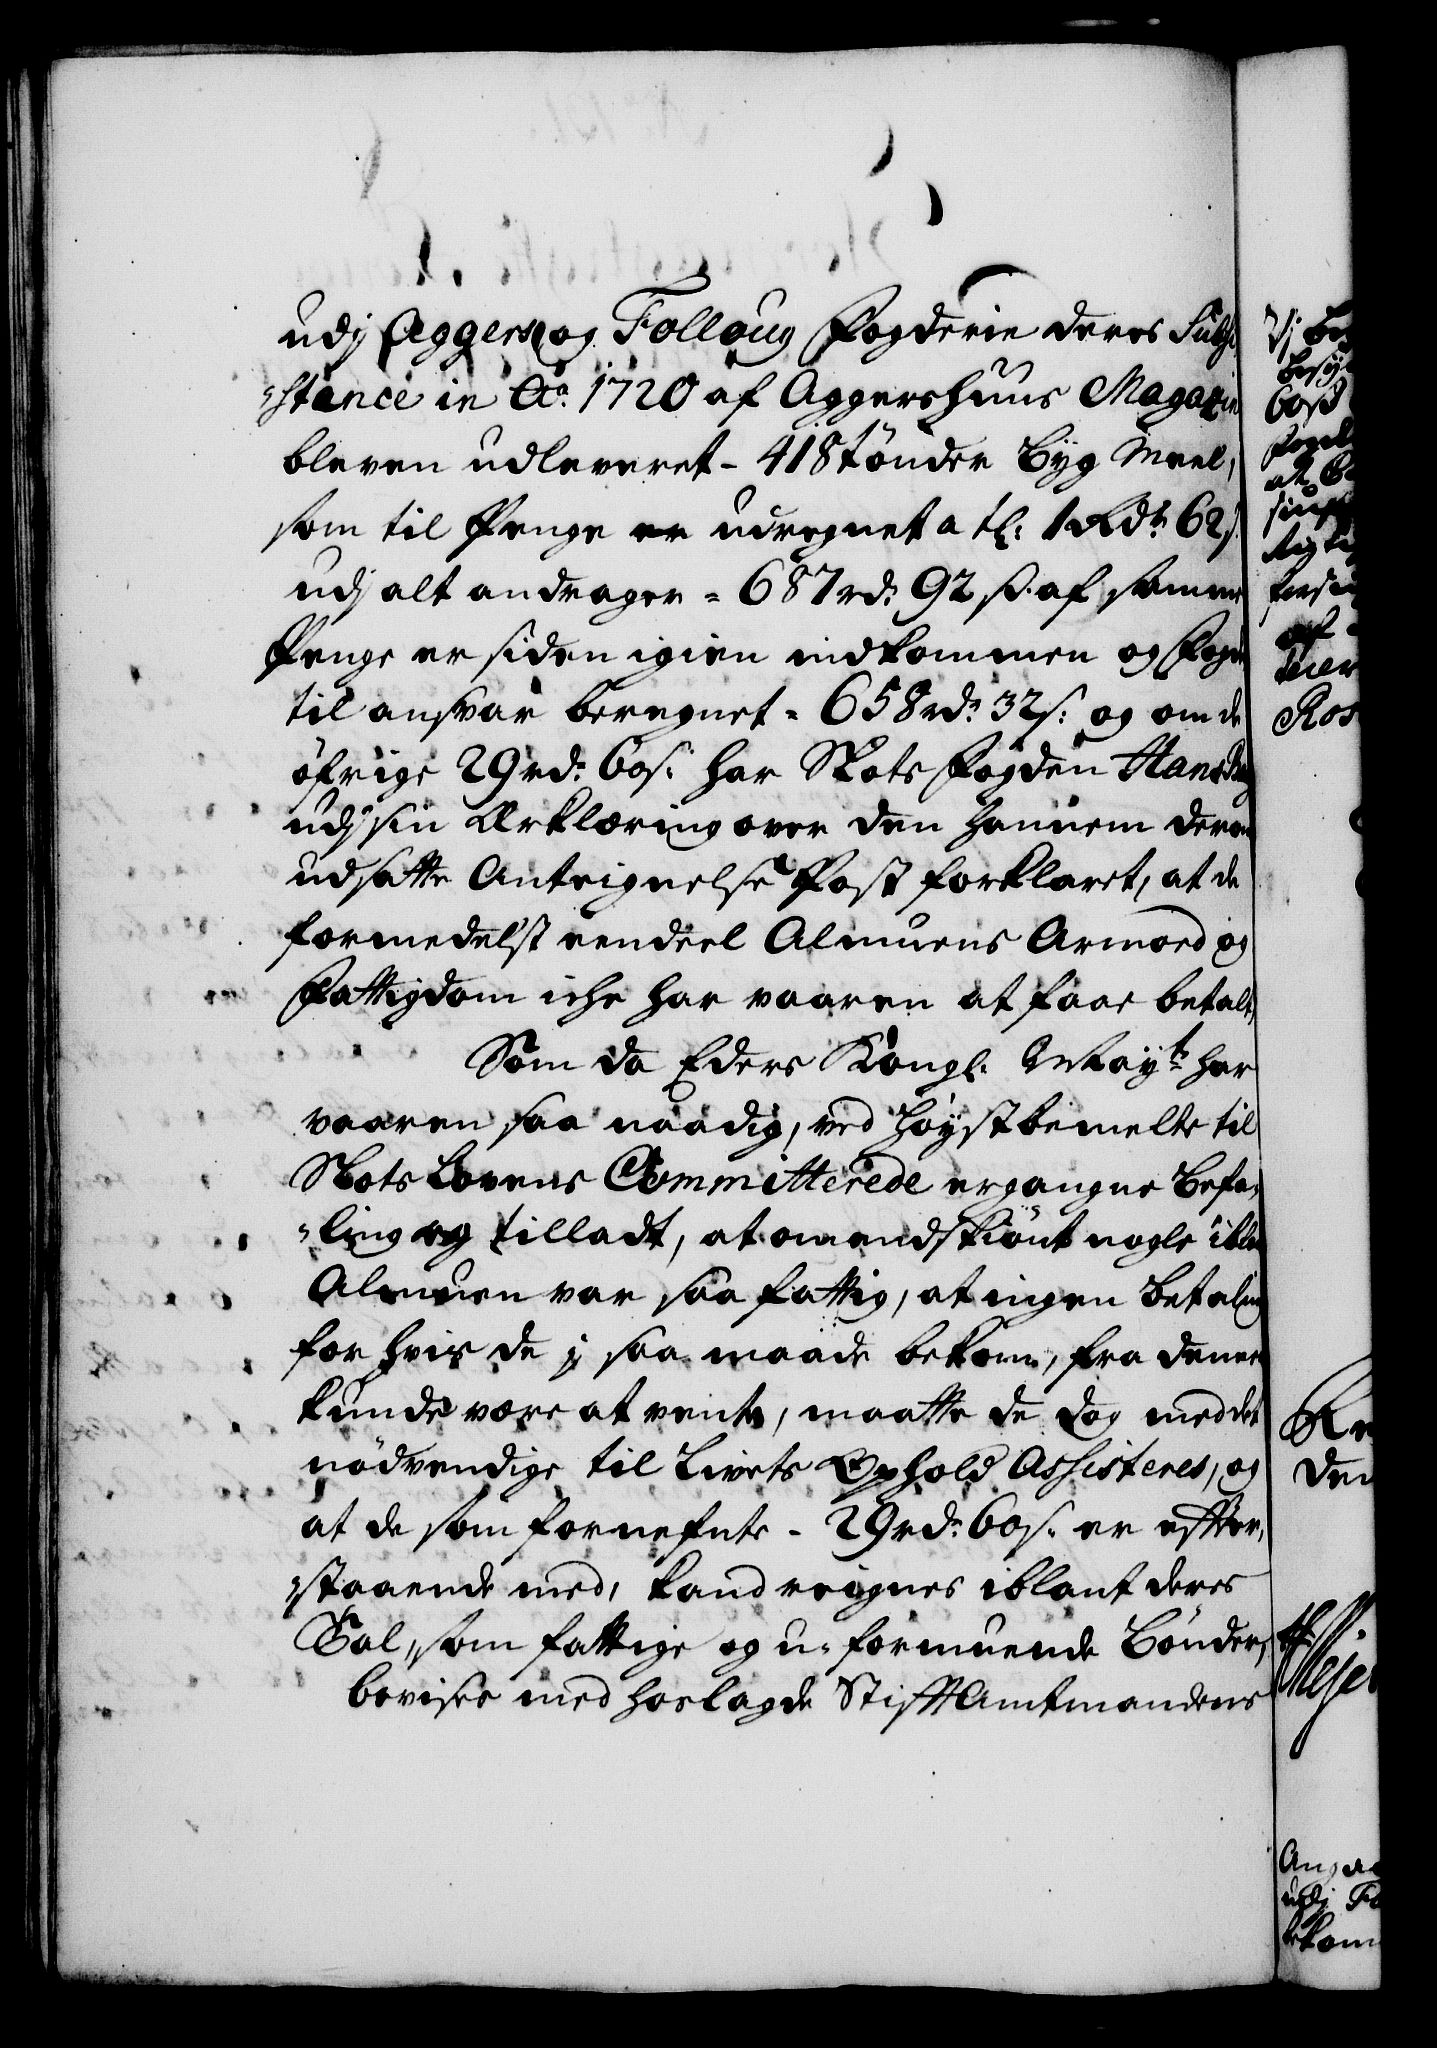 udj Aggers og Folloug Fogderie deres Subsi
„stence in Ao. 1720 af Aggershuus Magazin
bleven udleveret - 418 tönder Byg Meel,
som til Penge er udregnet a tl: 1 Rdr. 62 s.
udj alt andrager = 687 rd. 92 s. af samme
Penge er siden igien indkommen og Fogden
til ansvar beregnet = 658 rdr. 32 s: og om de
öfrige 29 rdr. 60 s: har Slots Fogden Hans
udj sin Erklæring over den hannem derom
udsatte Anteignelse Post forklaret, at de
formedelst eendeel Almuens Armoed og
Fattigdom iche har vaaren at faae betalt,
Som da Eders Kongl. Mayts. har
vaaren saa naadig, ved höystbemelte til
Slots Lovens Committerede ergangne Befa,
„ling og tilladt, at omendskiönt nogle iblant
Almuen var saa fattig, at ingen Betaling
for hvis de j saa maade bekom, fra dennem
kunde være at vente, maatte de dog med det
nödvendige til Livets Ophold Assisteres, og
at de som fornefnte - 29 rdr. 60 s. er efter,
„staaende med, kand reignes iblant deres
Tal, som fattige og u-formuende Bönder,
bevises med hoslagde Stifft Amtmandens